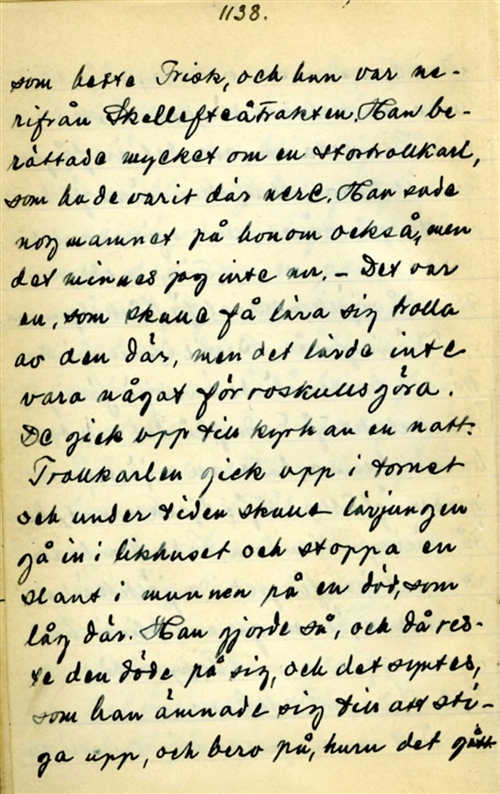 1138.
som hette Frisk, och han var ne-
rifrån Skellefteåtrakten. Han be-
rättade mycket om en stortrollkarl,
som hade varit där nere. Han sade
nog namnet på honom också, men
det minnes jag inte nu. – Det var
en, som skulle få lära sig trolla
av den där, men det lärde inte
vara något för roskullsgöra.
De gick upp till kyrkan en natt.
Trollkarlen gick upp i tornet
och under tiden skulle lärjungen
gå in i likhuset och stoppa en
slant i munnen på en död, som
låg där. Han gjorde så, och då res-
te den döde på sig, och det syntes,
som han ämnade sig till att sti-
ga upp, och bero på, huru det gått